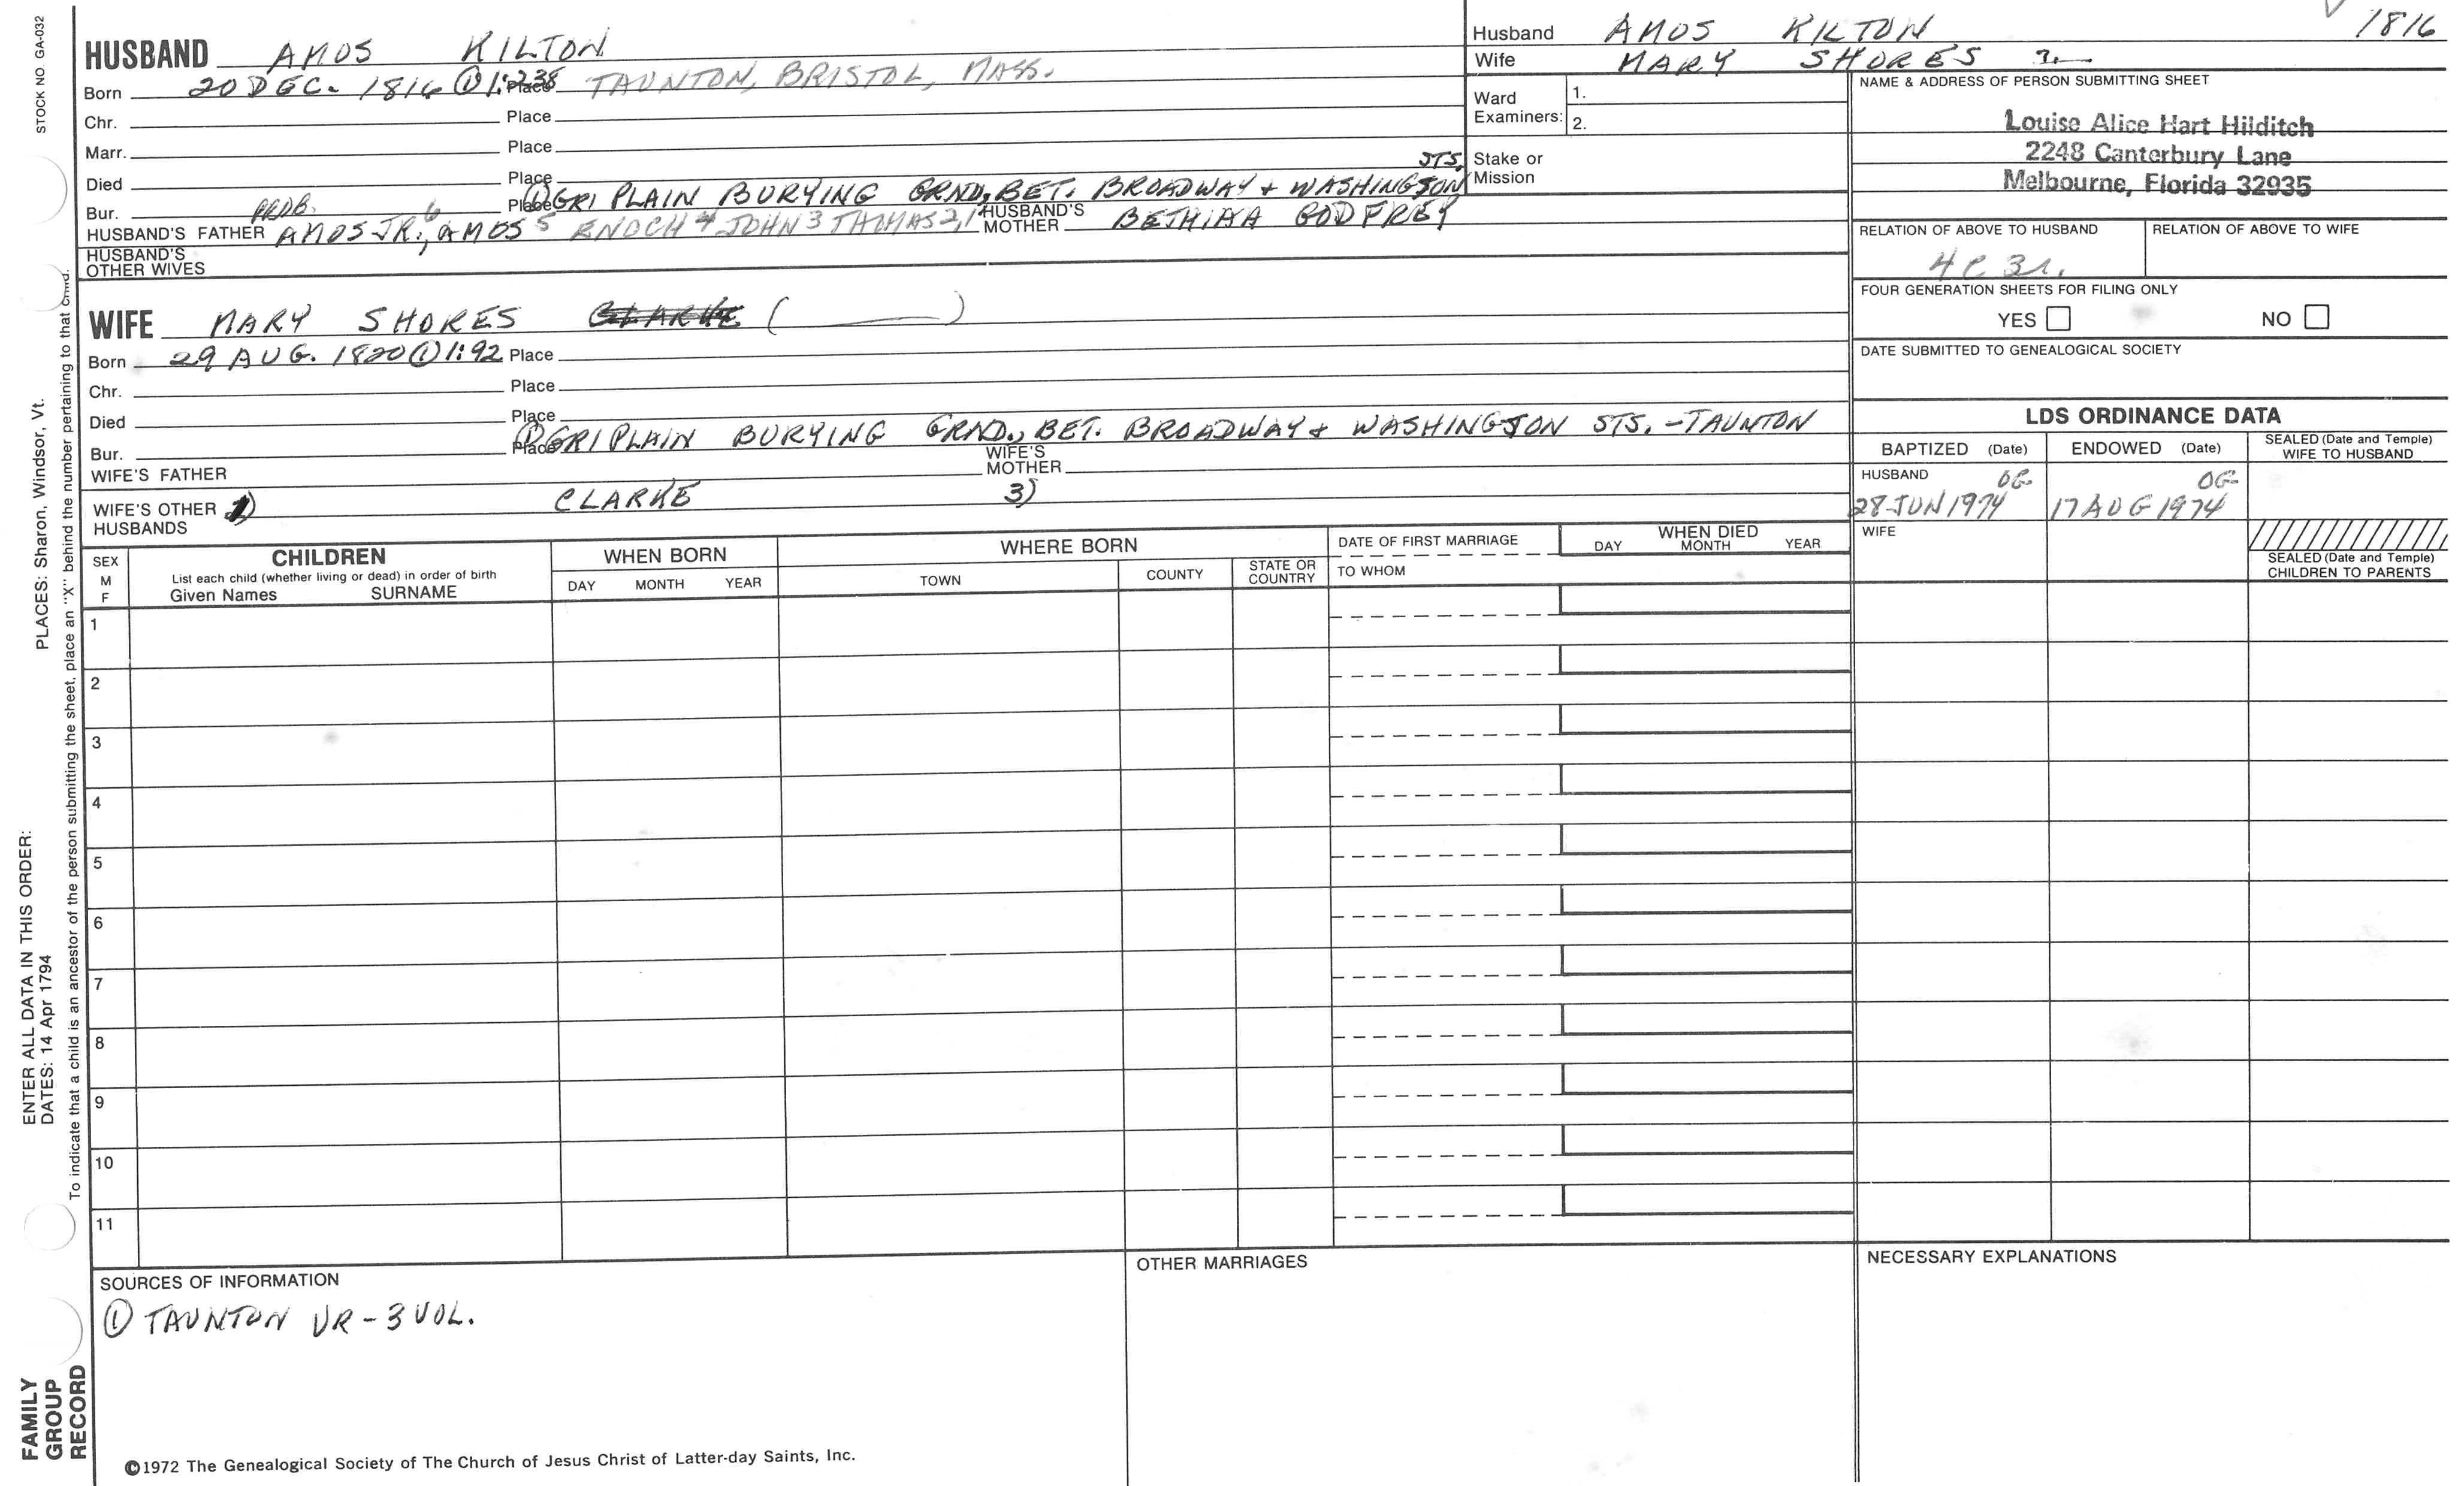 STOCK NO. GA-032
HUSBAND AMOS KILTON
Born 20 DEC. 1816 ① 1:238 Place TAUNTON, BRISTOL, MASS.
Chr. Place
Marr. Place
Died Place
Bur. Place ① GRI PLAIN BURYING GRND, BET. BROADWAY + WASHINGTON STS.
HUSBAND'S FATHER PROB. AMOS JR. 6, AMOS 5 ENOCH 4 JOHN 3 THOMAS 2,1 HUSBAND'S MOTHER BETHIAA GODFREY
HUSBAND'S OTHER WIVES
WIFE MARY SHORES CLARKE ( )
Born 29 AUG. 1820 ① 1:92 Place
Chr. Place
Died Place
Bur. Place ① GRI PLAIN BURYING GRND., BET. BROADWAY + WASHINGTON STS. - TAUNTON
WIFE'S FATHER WIFE'S MOTHER
WIFE'S OTHER HUSBANDS CLARKE 3)
Husband AMOS KILTON 1816
Wife MARY SHORES
Ward Examiners: 1.
2.
Stake or Mission
NAME & ADDRESS OF PERSON SUBMITTING SHEET
Louise Alice Hart Hilditch
2248 Canterbury Lane
Melbourne, Florida 32935
RELATION OF ABOVE TO HUSBAND RELATION OF ABOVE TO WIFE
4C 3r.
FOUR GENERATION SHEETS FOR FILING ONLY
YES NO
DATE SUBMITTED TO GENEALOGICAL SOCIETY
LDS ORDINANCE DATA
BAPTIZED (Date) ENDOWED (Date) SEALED (Date and Temple) WIFE TO HUSBAND
HUSBAND OG OG
28 JUN 1974 17 AUG 1974
WIFE
SEALED (Date and Temple) CHILDREN TO PARENTS
SEX M F
CHILDREN
List each child (whether living or dead) in order of birth
Given Names SURNAME
WHEN BORN
DAY MONTH YEAR
WHERE BORN
TOWN COUNTY STATE OR COUNTRY
DATE OF FIRST MARRIAGE
TO WHOM
WHEN DIED
DAY MONTH YEAR
1
2
3
4
5
6
7
8
9
10
11
SOURCES OF INFORMATION
① TAUNTON VR - 3 VOL.
OTHER MARRIAGES
NECESSARY EXPLANATIONS
©1972 The Genealogical Society of The Church of Jesus Christ of Latter-day Saints, Inc.
PLACES: Sharon, Windsor, Vt.
ENTER ALL DATA IN THIS ORDER:
DATES: 14 Apr 1794
To indicate that a child is an ancestor of the person submitting the sheet, place an "X" behind the number pertaining to that child.
FAMILY
GROUP
RECORD